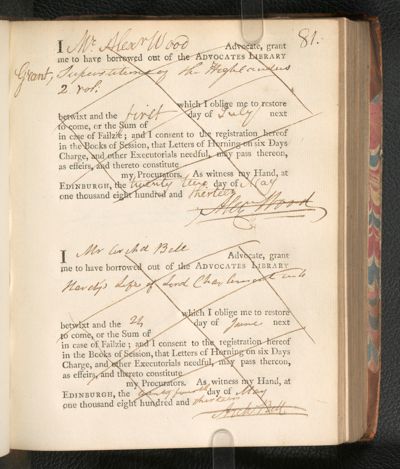 81.
I Mr. Alexr Wood Advocate, grant
me to have borrowed out of the ADVOCATES LIBRARY
Grant, Superstitions of the Highlanders
2 vol.
which I oblige me to restore
betwixt and the first day of July next
to come, or the Sum of
in case of Failzie; and I consent to the registration hereof
in the Books of Session, that Letters of Horning on six Days
Charge, and other Executorials needful, may pass thereon,
as effeirs, and thereto constitute
my Procurators. As witness my Hand, at
EDINBURGH, the twenty day of May
one thousand eight hundred and thirteen
Alexr Wood
I Mr Archd Bell Advocate, grant
me to have borrowed out of the ADVOCATES LIBRARY
Hardy's Life of Lord Charlemont
which I oblige me to restore
betwixt and the 24 day of June next
to come, or the Sum of
in case of Failzie; and I consent to the registration hereof
in the Books of Session, that Letters of Horning on six Days
Charge, and other Executorials needful, may pass thereon,
as effeirs, and thereto constitute
my Procurators. As witness my Hand, at
EDINBURGH, the twenty fourth day of May
one thousand eight hundred and thirteen
Archd Bell